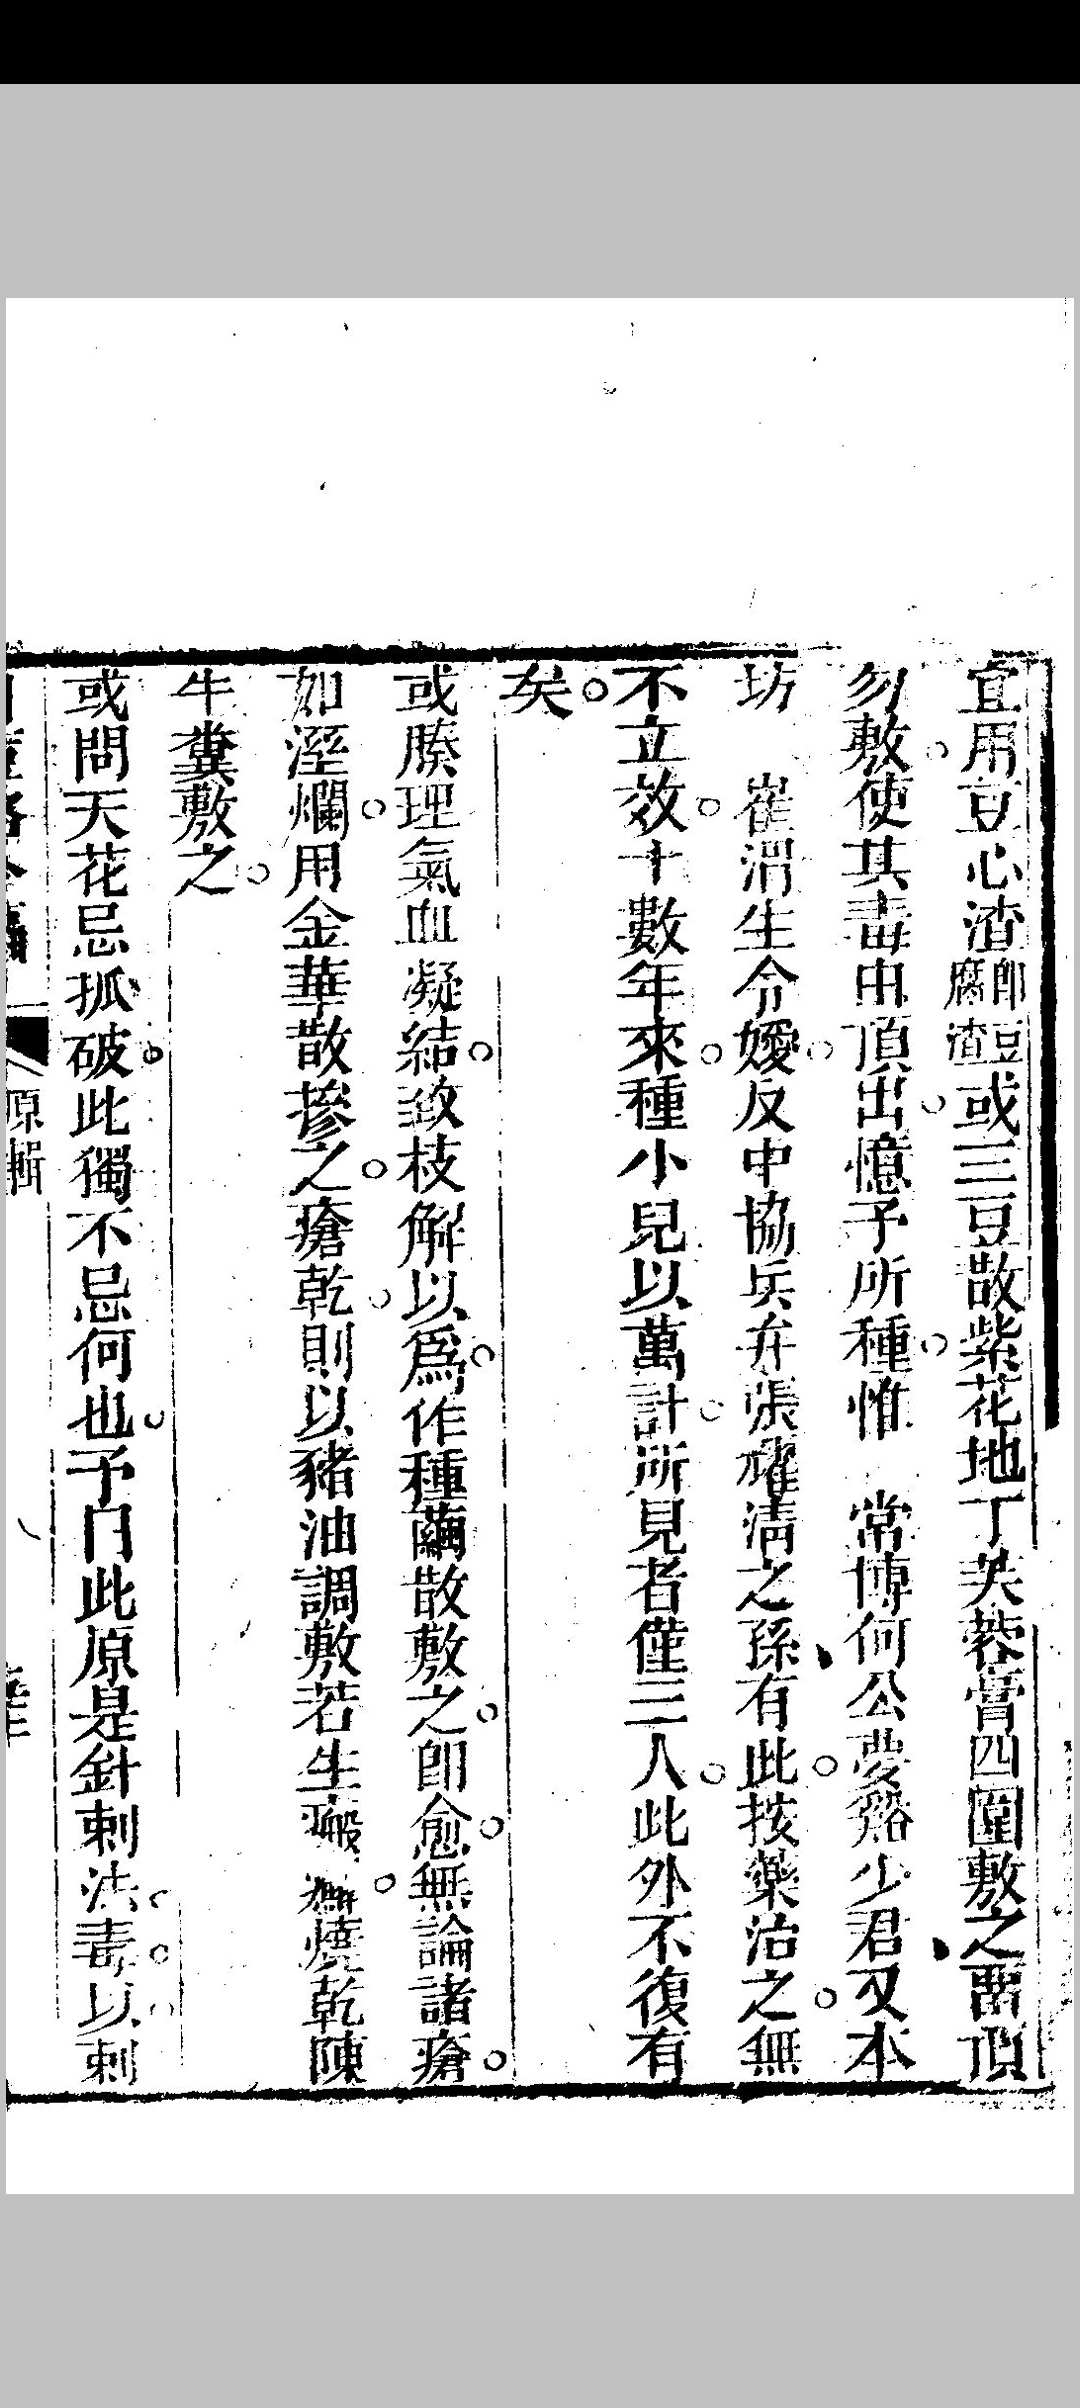 宜用豆心渣卽豆腐渣或三豆散紫花地丁芙蓉膏四圍敷之畱頂
勿敷使其毒由頂出憶予所種惟 常博何公夢谿少君又本
坊 崔渭生令嬡反中協兵弁張耀淸之孫有此按藥治之無
不立效十數年來種小兒以萬計所見者僅三人此外不復有
矣
或腠理氣血凝結致枝解以爲作種繭散敷之卽愈無論諸瘡
如溼爛用金華散摻之瘡乾則以豬油調敷若生瘢燒乾陳
牛糞敷之
或問天花忌抓破此獨不忌何也予曰此原是針刺法毒以刺
原輯